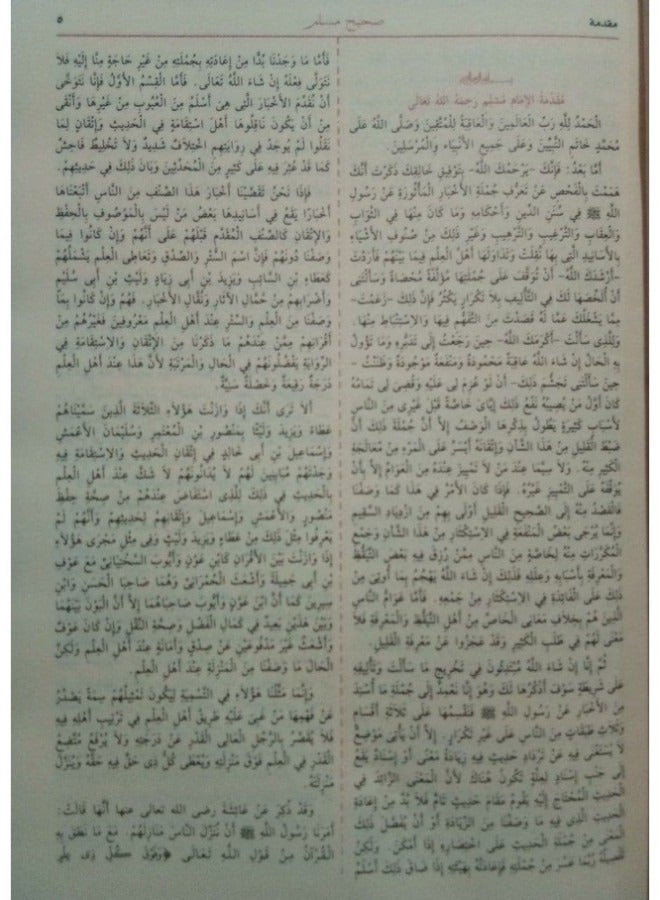 مقدمة
صحيح مسلم
٥
مُقَدِّمَةُ الإِمَامِ مُسْلِمٍ رَحِمَهُ اللهُ تَعَالَى
الْحَمْدُ لِلَّهِ رَبِّ الْعَالَمِينَ وَالْعَاقِبَةُ لِلْمُتَّقِينَ وَصَلَّى اللَّهُ عَلَى
مُحَمَّدٍ خَاتَمِ النَّبِيِّينَ وَعَلَى جَمِيعِ الأَنْبِيَاءِ وَالْمُرْسَلِينَ.
أَمَّا بَعْدُ: فَإِنَّكَ -يَرْحَمُكَ اللَّهُ- بِتَوْفِيقِ خَالِقِكَ ذَكَرْتَ أَنَّكَ
هَمَمْتَ بِالْفَحْصِ عَنْ تَعَرُّفِ جُمْلَةِ الأَخْبَارِ الْمَأْثُورَةِ عَنْ رَسُولِ
اللَّهِ ﷺ فِي سُنَنِ الدِّينِ وَأَحْكَامِهِ وَمَا كَانَ مِنْهَا فِي الثَّوَابِ
وَالْعِقَابِ وَالتَّرْغِيبِ وَالتَّرْهِيبِ وَغَيْرِ ذَلِكَ مِنْ صُنُوفِ الأَشْيَاءِ
بِالأَسَانِيدِ الَّتِي بِهَا نُقِلَتْ وَتَدَاوَلَهَا أَهْلُ الْعِلْمِ فِيمَا بَيْنَهُمْ فَأَرَدْتَ
-أَرْشَدَكَ اللَّهُ- أَنْ تُوَقَّفَ عَلَى جُمْلَتِهَا مُؤَلَّفَةً مُحْصَاةً وَسَأَلْتَنِي
أَنْ أُلَخِّصَهَا لَكَ فِي التَّأْلِيفِ بِلاَ تَكْرَارٍ يَكْثُرُ فَإِنَّ ذَلِكَ -زَعَمْتَ-
مِمَّا يَشْغَلُكَ عَمَّا لَهُ قَصَدْتَ مِنَ التَّفَهُّمِ فِيهَا وَالاِسْتِنْبَاطِ مِنْهَا.
وَلِلَّذِي سَأَلْتَ -أَكْرَمَكَ اللَّهُ- حِينَ رَجَعْتُ إِلَى تَدَبُّرِهِ وَمَا تَؤُولُ
بِهِ الْحَالُ إِنْ شَاءَ اللَّهُ عَاقِبَةٌ مَحْمُودَةٌ وَمَنْفَعَةٌ مَوْجُودَةٌ وَظَنَنْتُ -
حِينَ سَأَلْتَنِي تَجَشُّمَ ذَلِكَ- أَنْ لَوْ عُزِمَ لِي عَلَيْهِ وَقُضِيَ لِي تَمَامُهُ
كَانَ أَوَّلُ مَنْ يُصِيبُهُ نَفْعُ ذَلِكَ إِيَّايَ خَاصَّةً قَبْلَ غَيْرِي مِنَ النَّاسِ
لأَسْبَابٍ كَثِيرَةٍ يَطُولُ بِذِكْرِهَا الْوَصْفُ إِلاَّ أَنَّ جُمْلَةَ ذَلِكَ أَنَّ
ضَبْطَ الْقَلِيلِ مِنْ هَذَا الشَّأْنِ وَإِتْقَانَهُ أَيْسَرُ عَلَى الْمَرْءِ مِنْ مُعَالَجَةِ
الْكَثِيرِ مِنْهُ. وَلاَ سِيَّمَا عِنْدَ مَنْ لاَ تَمْيِيزَ عِنْدَهُ مِنَ الْعَوَامِّ إِلاَّ بِأَنْ
يُوَقِّفَهُ عَلَى التَّمْيِيزِ غَيْرُهُ. فَإِذَا كَانَ الأَمْرُ فِي هَذَا كَمَا وَصَفْنَا
فَالْقَصْدُ مِنْهُ إِلَى الصَّحِيحِ الْقَلِيلِ أَوْلَى بِهِمْ مِنِ ازْدِيَادِ السَّقِيمِ
وَإِنَّمَا يُرْجَى بَعْضُ الْمَنْفَعَةِ فِي الاِسْتِكْثَارِ مِنْ هَذَا الشَّأْنِ وَجَمْعِ
الْمُكَرَّرَاتِ مِنْهُ لِخَاصَّةٍ مِنَ النَّاسِ مِمَّنْ رُزِقَ فِيهِ بَعْضَ التَّيَقُّظِ
وَالْمَعْرِفَةِ بِأَسْبَابِهِ وَعِلَلِهِ فَذَلِكَ إِنْ شَاءَ اللَّهُ يَهْجُمُ بِمَا أُوتِيَ مِنْ
ذَلِكَ عَلَى الْفَائِدَةِ فِي الاِسْتِكْثَارِ مِنْ جَمْعِهِ. فَأَمَّا عَوَامُّ النَّاسِ
الَّذِينَ هُمْ بِخِلاَفِ مَعَانِي الْخَاصِّ مِنْ أَهْلِ التَّيَقُّظِ وَالْمَعْرِفَةِ فَلاَ
مَعْنَى لَهُمْ فِي طَلَبِ الْكَثِيرِ وَقَدْ عَجَزُوا عَنْ مَعْرِفَةِ الْقَلِيلِ.
ثُمَّ إِنَّا إِنْ شَاءَ اللَّهُ مُبْتَدِئُونَ فِي تَخْرِيجِ مَا سَأَلْتَ وَتَأْلِيفِهِ
عَلَى شَرِيطَةٍ سَوْفَ أَذْكُرُهَا لَكَ وَهُوَ إِنَّا نَعْمِدُ إِلَى جُمْلَةِ مَا أُسْنِدَ
مِنَ الأَخْبَارِ عَنْ رَسُولِ اللَّهِ ﷺ فَنَقْسِمُهَا عَلَى ثَلاَثَةِ أَقْسَامٍ
وَثَلاَثِ طَبَقَاتٍ مِنَ النَّاسِ عَلَى غَيْرِ تَكْرَارٍ. إِلاَّ أَنْ يَأْتِيَ مَوْضِعٌ
لاَ يُسْتَغْنَى فِيهِ عَنْ تَرْدَادِ حَدِيثٍ فِيهِ زِيَادَةُ مَعْنًى أَوْ إِسْنَادٌ يَقَعُ
إِلَى جَنْبِ إِسْنَادٍ لِعِلَّةٍ تَكُونُ هُنَاكَ لأَنَّ الْمَعْنَى الزَّائِدَ فِي
الْحَدِيثِ الْمُحْتَاجَ إِلَيْهِ يَقُومُ مَقَامَ حَدِيثٍ تَامٍّ فَلاَ بُدَّ مِنْ إِعَادَةِ
الْحَدِيثِ الَّذِي فِيهِ مَا وَصَفْنَا مِنَ الزِّيَادَةِ أَوْ أَنْ يُفَصَّلَ ذَلِكَ
الْمَعْنَى مِنْ جُمْلَةِ الْحَدِيثِ عَلَى اخْتِصَارِهِ إِذَا أَمْكَنَ. وَلَكِنْ
تَفْصِيلُهُ رُبَّمَا عَسُرَ مِنْ جُمْلَتِهِ فَإِعَادَتُهُ بِهَيْئَتِهِ إِذَا ضَاقَ ذَلِكَ أَسْلَمُ
فَأَمَّا مَا وَجَدْنَا بُدًّا مِنْ إِعَادَتِهِ بِجُمْلَتِهِ مِنْ غَيْرِ حَاجَةٍ مِنَّا إِلَيْهِ فَلاَ
نَتَوَلَّى فِعْلَهُ إِنْ شَاءَ اللَّهُ تَعَالَى. فَأَمَّا الْقِسْمُ الأَوَّلُ فَإِنَّا نَتَوَخَّى
أَنْ نُقَدِّمَ الأَخْبَارَ الَّتِي هِيَ أَسْلَمُ مِنَ الْعُيُوبِ مِنْ غَيْرِهَا وَأَنْقَى
مِنْ أَنْ يَكُونَ نَاقِلُوهَا أَهْلَ اسْتِقَامَةٍ فِي الْحَدِيثِ وَإِتْقَانٍ لِمَا
نَقَلُوا لَمْ يُوجَدْ فِي رِوَايَتِهِمِ اخْتِلاَفٌ شَدِيدٌ وَلاَ تَخْلِيطٌ فَاحِشٌ
كَمَا قَدْ عُثِرَ فِيهِ عَلَى كَثِيرٍ مِنَ الْمُحَدِّثِينَ وَبَانَ ذَلِكَ فِي حَدِيثِهِمْ.
فَإِذَا نَحْنُ تَقَصَّيْنَا أَخْبَارَ هَذَا الصِّنْفِ مِنَ النَّاسِ أَتْبَعْنَاهَا
أَخْبَارًا يَقَعُ فِي أَسَانِيدِهَا بَعْضُ مَنْ لَيْسَ بِالْمَوْصُوفِ بِالْحِفْظِ
وَالإِتْقَانِ كَالصِّنْفِ الْمُقَدَّمِ قَبْلَهُمْ عَلَى أَنَّهُمْ وَإِنْ كَانُوا فِيمَا
وَصَفْنَا دُونَهُمْ فَإِنَّ اسْمَ السَّتْرِ وَالصِّدْقِ وَتَعَاطِي الْعِلْمِ يَشْمَلُهُمْ
كَعَطَاءِ بْنِ السَّائِبِ وَيَزِيدَ بْنِ أَبِي زِيَادٍ وَلَيْثِ بْنِ أَبِي سُلَيْمٍ
وَأَضْرَابِهِمْ مِنْ حُمَّالِ الآثَارِ وَنُقَّالِ الأَخْبَارِ. فَهُمْ وَإِنْ كَانُوا بِمَا
وَصَفْنَا مِنَ الْعِلْمِ وَالسَّتْرِ عِنْدَ أَهْلِ الْعِلْمِ مَعْرُوفِينَ فَغَيْرُهُمْ مِنْ
أَقْرَانِهِمْ مِمَّنْ عِنْدَهُمْ مَا ذَكَرْنَا مِنَ الإِتْقَانِ وَالاِسْتِقَامَةِ فِي
الرِّوَايَةِ يَفْضُلُونَهُمْ فِي الْحَالِ وَالْمَرْتَبَةِ لأَنَّ هَذَا عِنْدَ أَهْلِ الْعِلْمِ
دَرَجَةٌ رَفِيعَةٌ وَخَصْلَةٌ سَنِيَّةٌ.
أَلاَ تَرَى أَنَّكَ إِذَا وَازَنْتَ هَؤُلاَءِ الثَّلاَثَةَ الَّذِينَ سَمَّيْنَاهُمْ
عَطَاءً وَيَزِيدَ وَلَيْثًا بِمَنْصُورِ بْنِ الْمُعْتَمِرِ وَسُلَيْمَانَ الأَعْمَشِ
وَإِسْمَاعِيلَ بْنِ أَبِي خَالِدٍ فِي إِتْقَانِ الْحَدِيثِ وَالاِسْتِقَامَةِ فِيهِ
وَجَدْتَهُمْ مُبَايِنِينَ لَهُمْ لاَ يُدَانُونَهُمْ لاَ شَكَّ عِنْدَ أَهْلِ الْعِلْمِ
بِالْحَدِيثِ فِي ذَلِكَ لِلَّذِي اسْتَفَاضَ عِنْدَهُمْ مِنْ صِحَّةِ حِفْظِ
مَنْصُورٍ وَالأَعْمَشِ وَإِسْمَاعِيلَ وَإِتْقَانِهِمْ لِحَدِيثِهِمْ وَأَنَّهُمْ لَمْ
يَعْرِفُوا مِثْلَ ذَلِكَ مِنْ عَطَاءٍ وَيَزِيدَ وَلَيْثٍ وَفِي مِثْلِ مَجْرَى هَؤُلاَءِ
إِذَا وَازَنْتَ بَيْنَ الأَقْرَانِ كَابْنِ عَوْنٍ وَأَيُّوبَ السَّخْتِيَانِيِّ مَعَ عَوْفِ
بْنِ أَبِي جَمِيلَةَ وَأَشْعَثَ الْحُمْرَانِيِّ وَهُمَا صَاحِبَا الْحَسَنِ وَابْنِ
سِيرِينَ كَمَا أَنَّ ابْنَ عَوْنٍ وَأَيُّوبَ صَاحِبَاهُمَا إِلاَّ أَنَّ الْبَوْنَ بَيْنَهُمَا
وَبَيْنَ هَذَيْنِ بَعِيدٌ فِي كَمَالِ الْفَضْلِ وَصِحَّةِ النَّقْلِ وَإِنْ كَانَ عَوْفٌ
وَأَشْعَثُ غَيْرَ مَدْفُوعَيْنِ عَنْ صِدْقٍ وَأَمَانَةٍ عِنْدَ أَهْلِ الْعِلْمِ وَلَكِنَّ
الْحَالَ مَا وَصَفْنَا مِنَ الْمَنْزِلَةِ عِنْدَ أَهْلِ الْعِلْمِ.
وَإِنَّمَا مَثَّلْنَا هَؤُلاَءِ فِي التَّسْمِيَةِ لِيَكُونَ تَمْثِيلُهُمْ سِمَةً يَصْدُرُ
عَنْ فَهْمِهَا مَنْ غَبِيَ عَلَيْهِ طَرِيقُ أَهْلِ الْعِلْمِ فِي تَرْتِيبِ أَهْلِهِ فِيهِ
فَلاَ يُقَصَّرُ بِالرَّجُلِ الْعَالِي الْقَدْرِ عَنْ دَرَجَتِهِ وَلاَ يُرْفَعُ مُتَّضِعُ
الْقَدْرِ فِي الْعِلْمِ فَوْقَ مَنْزِلَتِهِ وَيُعْطَى كُلُّ ذِي حَقٍّ فِيهِ حَقَّهُ وَيُنَزَّلُ
مَنْزِلَتَهُ.
وَقَدْ ذُكِرَ عَنْ عَائِشَةَ رضى الله تعالى عنها أَنَّهَا قَالَتْ:
أَمَرَنَا رَسُولُ اللَّهِ ﷺ أَنْ نُنَزِّلَ النَّاسَ مَنَازِلَهُمْ. مَعَ مَا نَطَقَ بِهِ
الْقُرْآنُ مِنْ قَوْلِ اللَّهِ تَعَالَى ﴿وَفَوْقَ كُلِّ ذِي عِلْمٍ